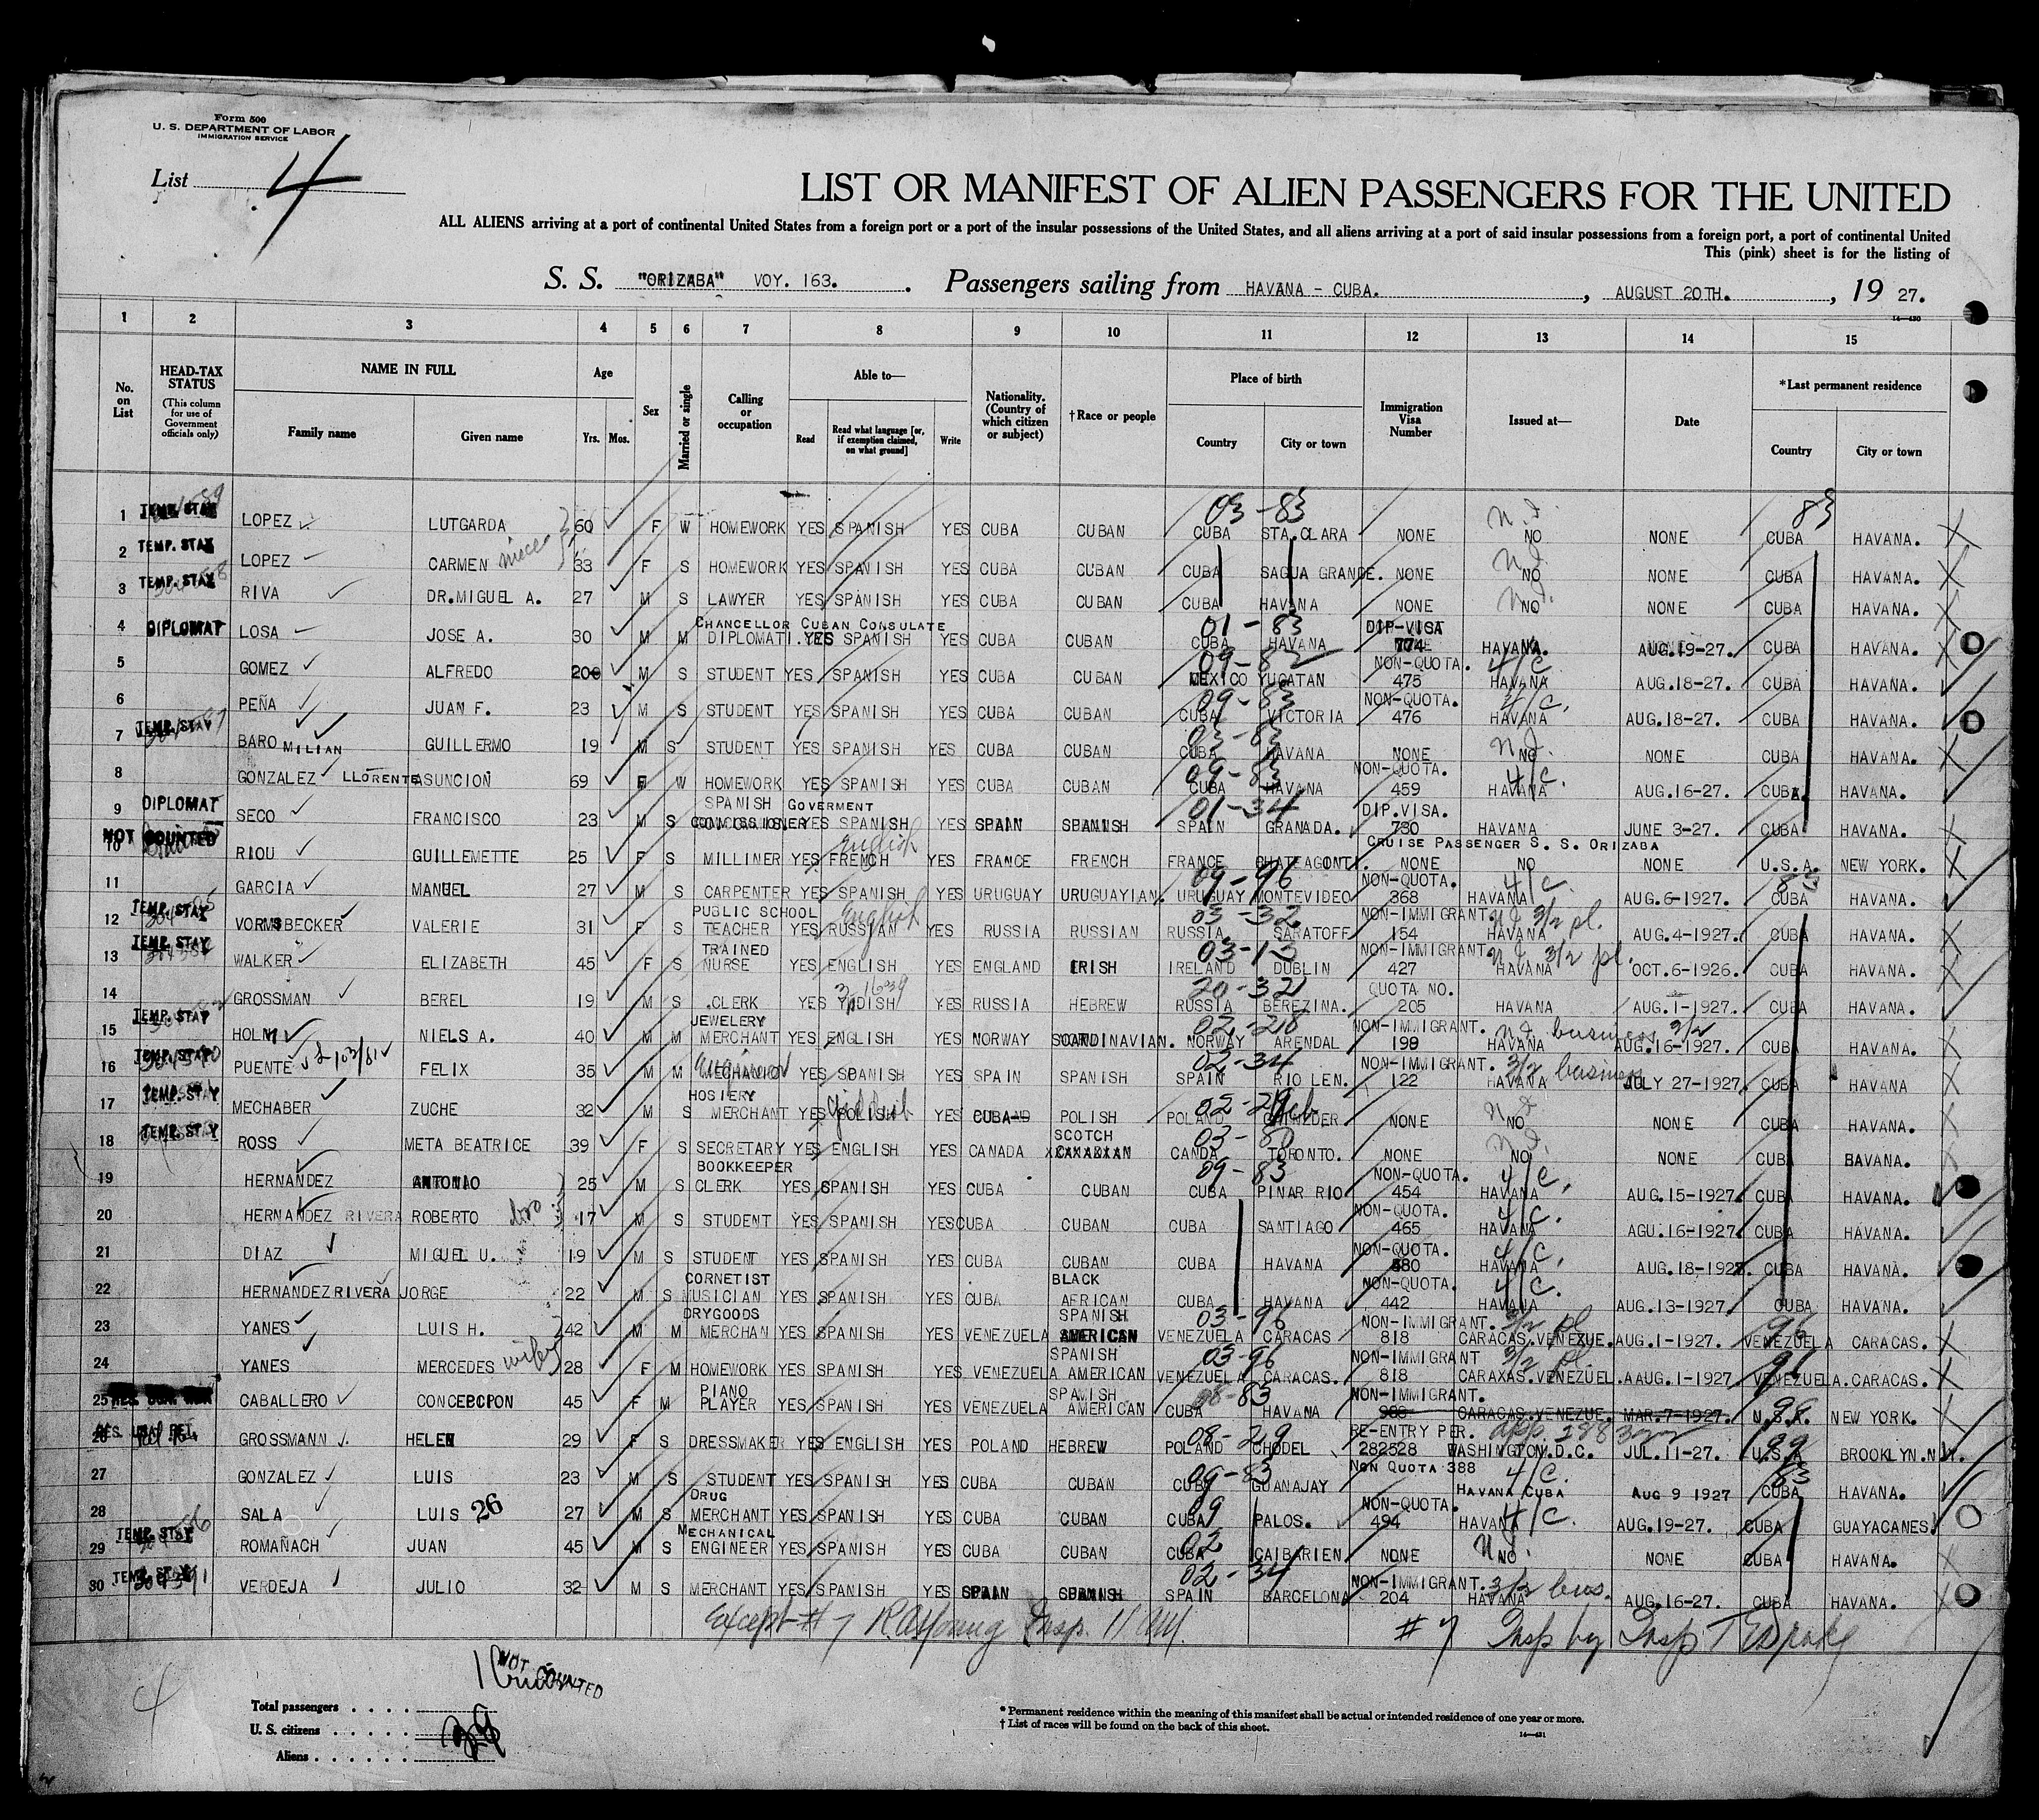 Form 500
U. S. DEPARTMENT OF LABOR
IMMIGRATION SERVICE
List 4
LIST OR MANIFEST OF ALIEN PASSENGERS FOR THE UNITED
ALL ALIENS arriving at a port of continental United States from a foreign port or a port of the insular possessions of the United States, and all aliens arriving at a port of said insular possessions from a foreign port, a port of continental United
This (pink) sheet is for the listing of
S. S. "ORIZABA" VOY. 163. Passengers sailing from HAVANA - CUBA. , AUGUST 20TH. , 19 27.
14—430
1 2 3 4 5 6 7 8 9 10 11 12 13 14 15
No. on List
HEAD-TAX STATUS (This column for use of Government officials only)
NAME IN FULL
Family name Given name
Age Yrs. Mos.
Sex
Married or single
Calling or occupation
Able to—
Read Read what language [or, if exemption claimed, on what ground] Write
Nationality. (Country of which citizen or subject)
†Race or people
Place of birth
Country City or town
Immigration Visa Number
Issued at—
Date
*Last permanent residence
Country City or town
03-83 n.d. 83
1 TEMP. STAY LOPEZ LUTGARDA 60 F W HOMEWORK YES SPANISH YES CUBA CUBAN CUBA STA.CLARA NONE NO NONE CUBA HAVANA. X
2 TEMP. STAY LOPEZ CARMEN niece 33 F S HOMEWORK YES SPANISH YES CUBA CUBAN CUBA SAGUA GRANDE. NONE NO NONE CUBA HAVANA. X
3 TEMP. STAY RIVA DR.MIGUEL A. 27 M S LAWYER YES SPANISH YES CUBA CUBAN CUBA HAVANA NONE NO NONE CUBA HAVANA. X
CHANCELLOR CUBAN CONSULATE 01-83 DIP-VISA
4 DIPLOMAT LOSA JOSE A. 30 M M DIPLOMATI. YES SPANISH YES CUBA CUBAN CUBA HAVANA 774 HAVANA. AUG.19-27. CUBA HAVANA. X
NON-QUOTA. 4/C
5 GOMEZ ALFREDO 20 M S STUDENT YES SPANISH YES CUBA CUBAN MEXICO YUCATAN 475 HAVANA AUG.18-27. CUBA HAVANA.
09-83 NON-QUOTA. 4/C.
6 PEÑA JUAN F. 23 M S STUDENT YES SPANISH YES CUBA CUBAN CUBA VICTORIA 476 HAVANA AUG.18-27. CUBA HAVANA.
03-83 n.d.
7 TEMP. STAY BARO MILIAN GUILLERMO 19 M S STUDENT YES SPANISH YES CUBA CUBAN CUBA HAVANA NONE NO NONE CUBA HAVANA. X
09-83 NON-QUOTA. 4/C.
8 GONZALEZ LLORENTE ASUNCION 69 F W HOMEWORK YES SPANISH YES CUBA CUBAN CUBA HAVANA 459 HAVANA AUG.16-27. CUBA. HAVANA.
SPANISH GOVERMENT 01-34 DIP.VISA.
9 DIPLOMAT SECO FRANCISCO 23 M S COMISSIONER YES SPANISH YES SPAIN SPANISH SPAIN GRANADA. 730 HAVANA JUNE 3-27. CUBA HAVANA. X
NOT COUNTED English CRUISE PASSENGER S. S. ORIZABA
10 RIOU GUILLEMETTE 25 F S MILLINER YES FRENCH YES FRANCE FRENCH FRANCE NONE NO NONE U.S.A. NEW YORK. X
09-96 NON-QUOTA. 4/C. 83
11 GARCIA MANUEL 27 M S CARPENTER YES SPANISH YES URUGUAY URUGUAYIAN. URUGUAY MONTEVIDEO 368 HAVANA AUG.6-1927. CUBA HAVANA.
PUBLIC SCHOOL English 03-32 NON-IMMIGRANT. 3/2 pl.
12 TEMP. STAY VORMSBECKER VALERIE 31 F S TEACHER YES RUSSIAN YES RUSSIA RUSSIAN RUSSIA SARATOFF 154 HAVANA AUG.4-1927. CUBA HAVANA. X
TRAINED 03-13 NON-IMMIGRANT. 3/2 pl.
13 TEMP. STAY WALKER ELIZABETH 45 F S NURSE YES ENGLISH YES ENGLAND IRISH IRELAND DUBLIN 427 HAVANA OCT.6-1926. CUBA HAVANA. X
20-32 QUOTA NO.
14 GROSSMAN BEREL 19 M S CLERK YES YIDISH YES RUSSIA HEBREW RUSSIA BEREZINA. 205 HAVANA AUG.1-1927. CUBA HAVANA.
JEWELERY 02-28 NON-IMMIGRANT. n.d. business 3/2
15 TEMP. STAY HOLM NIELS A. 40 M M MERCHANT YES ENGLISH YES NORWAY SCANDINAVIAN. NORWAY ARENDAL 199 HAVANA AUG.16-1927. CUBA HAVANA. X
02-34 NON-IMMIGRANT. 3/2 business
16 TEMP. STAY PUENTE FELIX 35 M M MECHANIC Engineer YES SPANISH YES SPAIN SPANISH SPAIN RIO LEN. 122 HAVANA JULY 27-1927. CUBA HAVANA X
HOSIERY 02-29 n.d.
17 TEMP. STAY MECHABER ZUCHE 32 M S MERCHANT YES POLISH YES POLISH POLAND NONE NO NONE CUBA HAVANA.
SCOTCH 03-80 n.d.
18 TEMP. STAY ROSS META BEATRICE 39 F S SECRETARY YES ENGLISH YES CANADA CANADIAN CANDA TORONTO. NONE NO NONE CUBA BAVANA.
BOOKKEEPER 09-83 NON-QUOTA. 4/C,
19 HERNANDEZ ANTONIO 25 M S CLERK YES SPANISH YES CUBA CUBAN CUBA PINAR RIO 454 HAVANA AUG.15-1927. CUBA HAVANA.
NON-QUOTA. 4/C.
20 HERNANDEZ RIVERA ROBERTO bro 17 M S STUDENT YES SPANISH YES CUBA CUBAN CUBA SANTIAGO 465 HAVANA AGU.16-1927. CUBA HAVANA.
NON-QUOTA. 4/C,
21 DIAZ MIGUEL U. 19 M S STUDENT YES SPANISH YES CUBA CUBAN CUBA HAVANA 380 HAVANA AUG.18-1927. CUBA HAVANA.
CORNETIST BLACK NON-QUOTA. 4/C.
22 HERNANDEZ RIVERA JORGE 22 M S MUSICIAN YES SPANISH YES CUBA AFRICAN CUBA HAVANA 442 HAVANA AUG.13-1927. CUBA HAVANA.
DRYGOODS SPANISH 03-96 NON-IMMIGRANT. 3/2 pl. 96
23 YANES LUIS H. 42 M M MERCHAN YES SPANISH YES VENEZUELA AMERICAN VENEZUELA CARACAS 818 CARACAS.VENEXUE. AUG.1-1927. VENEZUELA CARACAS. X
SPANISH 03-96 NON-IMMIGRANT 3/2 pl. 96
24 YANES MERCEDES wife 28 F M HOMEWORK YES SPANISH YES VENEZUELA AMERICAN VENEZUELA CARACAS. 818 CARAXAS.VENEZUEL. AAUG.1-1927. VENEZUELA.CARACAS. X
PIANO SPANISH 08-83 NON-IMMIGRANT. 99
25 CABALLERO CONCEPCION 45 F M PLAYER YES SPANISH YES VENEZUELA AMERICAN CUBA HAVANA CARACAS.VENEZUE. MAR.7-1927. U.S.A. NEW YORK.
08-29 RE-ENTRY PER. 99
26 GROSSMANN HELEN 29 F S DRESSMAKER YES ENGLISH YES POLAND HEBREW POLAND CHODEL 282528 WASHINGTON.D.C. JUL.11-27. U.S.A. BROOKLYN.N.Y.
09-83 NON QUOTA 388 4/C. 83
27 GONZALEZ LUIS 23 M S STUDENT YES SPANISH YES CUBA CUBAN CUBA GUANAJAY HAVANA CUBA AUG 9 1927 CUBA HAVANA.
DRUG 09 NON-QUOTA. 4/C.
28 SALA LUIS 26 27 M S MERCHANT YES SPANISH YES CUBA CUBAN CUBA PALOS. 494 HAVANA AUG.19-27. CUBA GUAYACANES.
MECHANICAL 02 n.d.
29 TEMP. STAY ROMAÑACH JUAN 45 M S ENGINEER YES SPANISH YES CUBA CUBAN CUBA CAIBARIEN NONE NO NONE CUBA HAVANA. X
02-34 NON-IMMIGRANT. 3/2 bus.
30 TEMP. STAY VERDEJA JULIO 32 M S MERCHANT YES SPANISH YES SPAIN SPANISH SPAIN BARCELONA 204 HAVANA AUG.16-27. CUBA HAVANA. X
Except #7 Insp. # 7 Insp by Insp
NOT COUNTED
4
Total passengers . . . .
U. S. citizens . . . . .
Aliens . . . . . . 29
* Permanent residence within the meaning of this manifest shall be actual or intended residence of one year or more.
† List of races will be found on the back of this sheet.
14—431